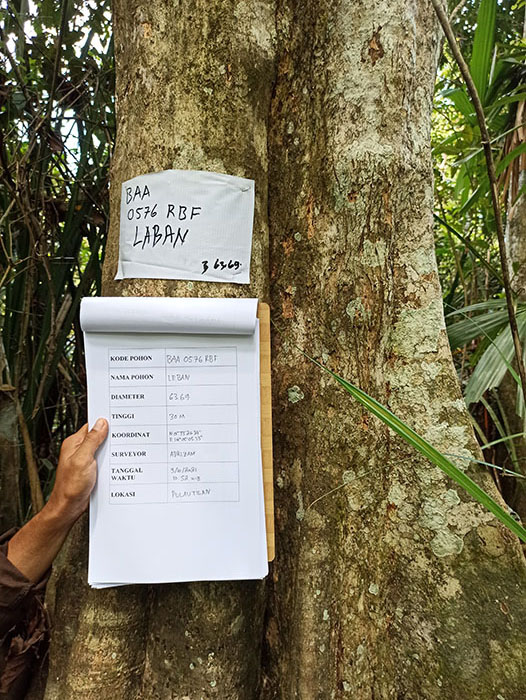 BAA
0576 RBF
LABAN
3 63.69
KODE POHON BAA 0576 RBF
NAMA POHON LABAN
DIAMETER 63.69
TINGGI 30 M
KOORDINAT
SURVEYOR
TANGGAL
WAKTU
LOKASI